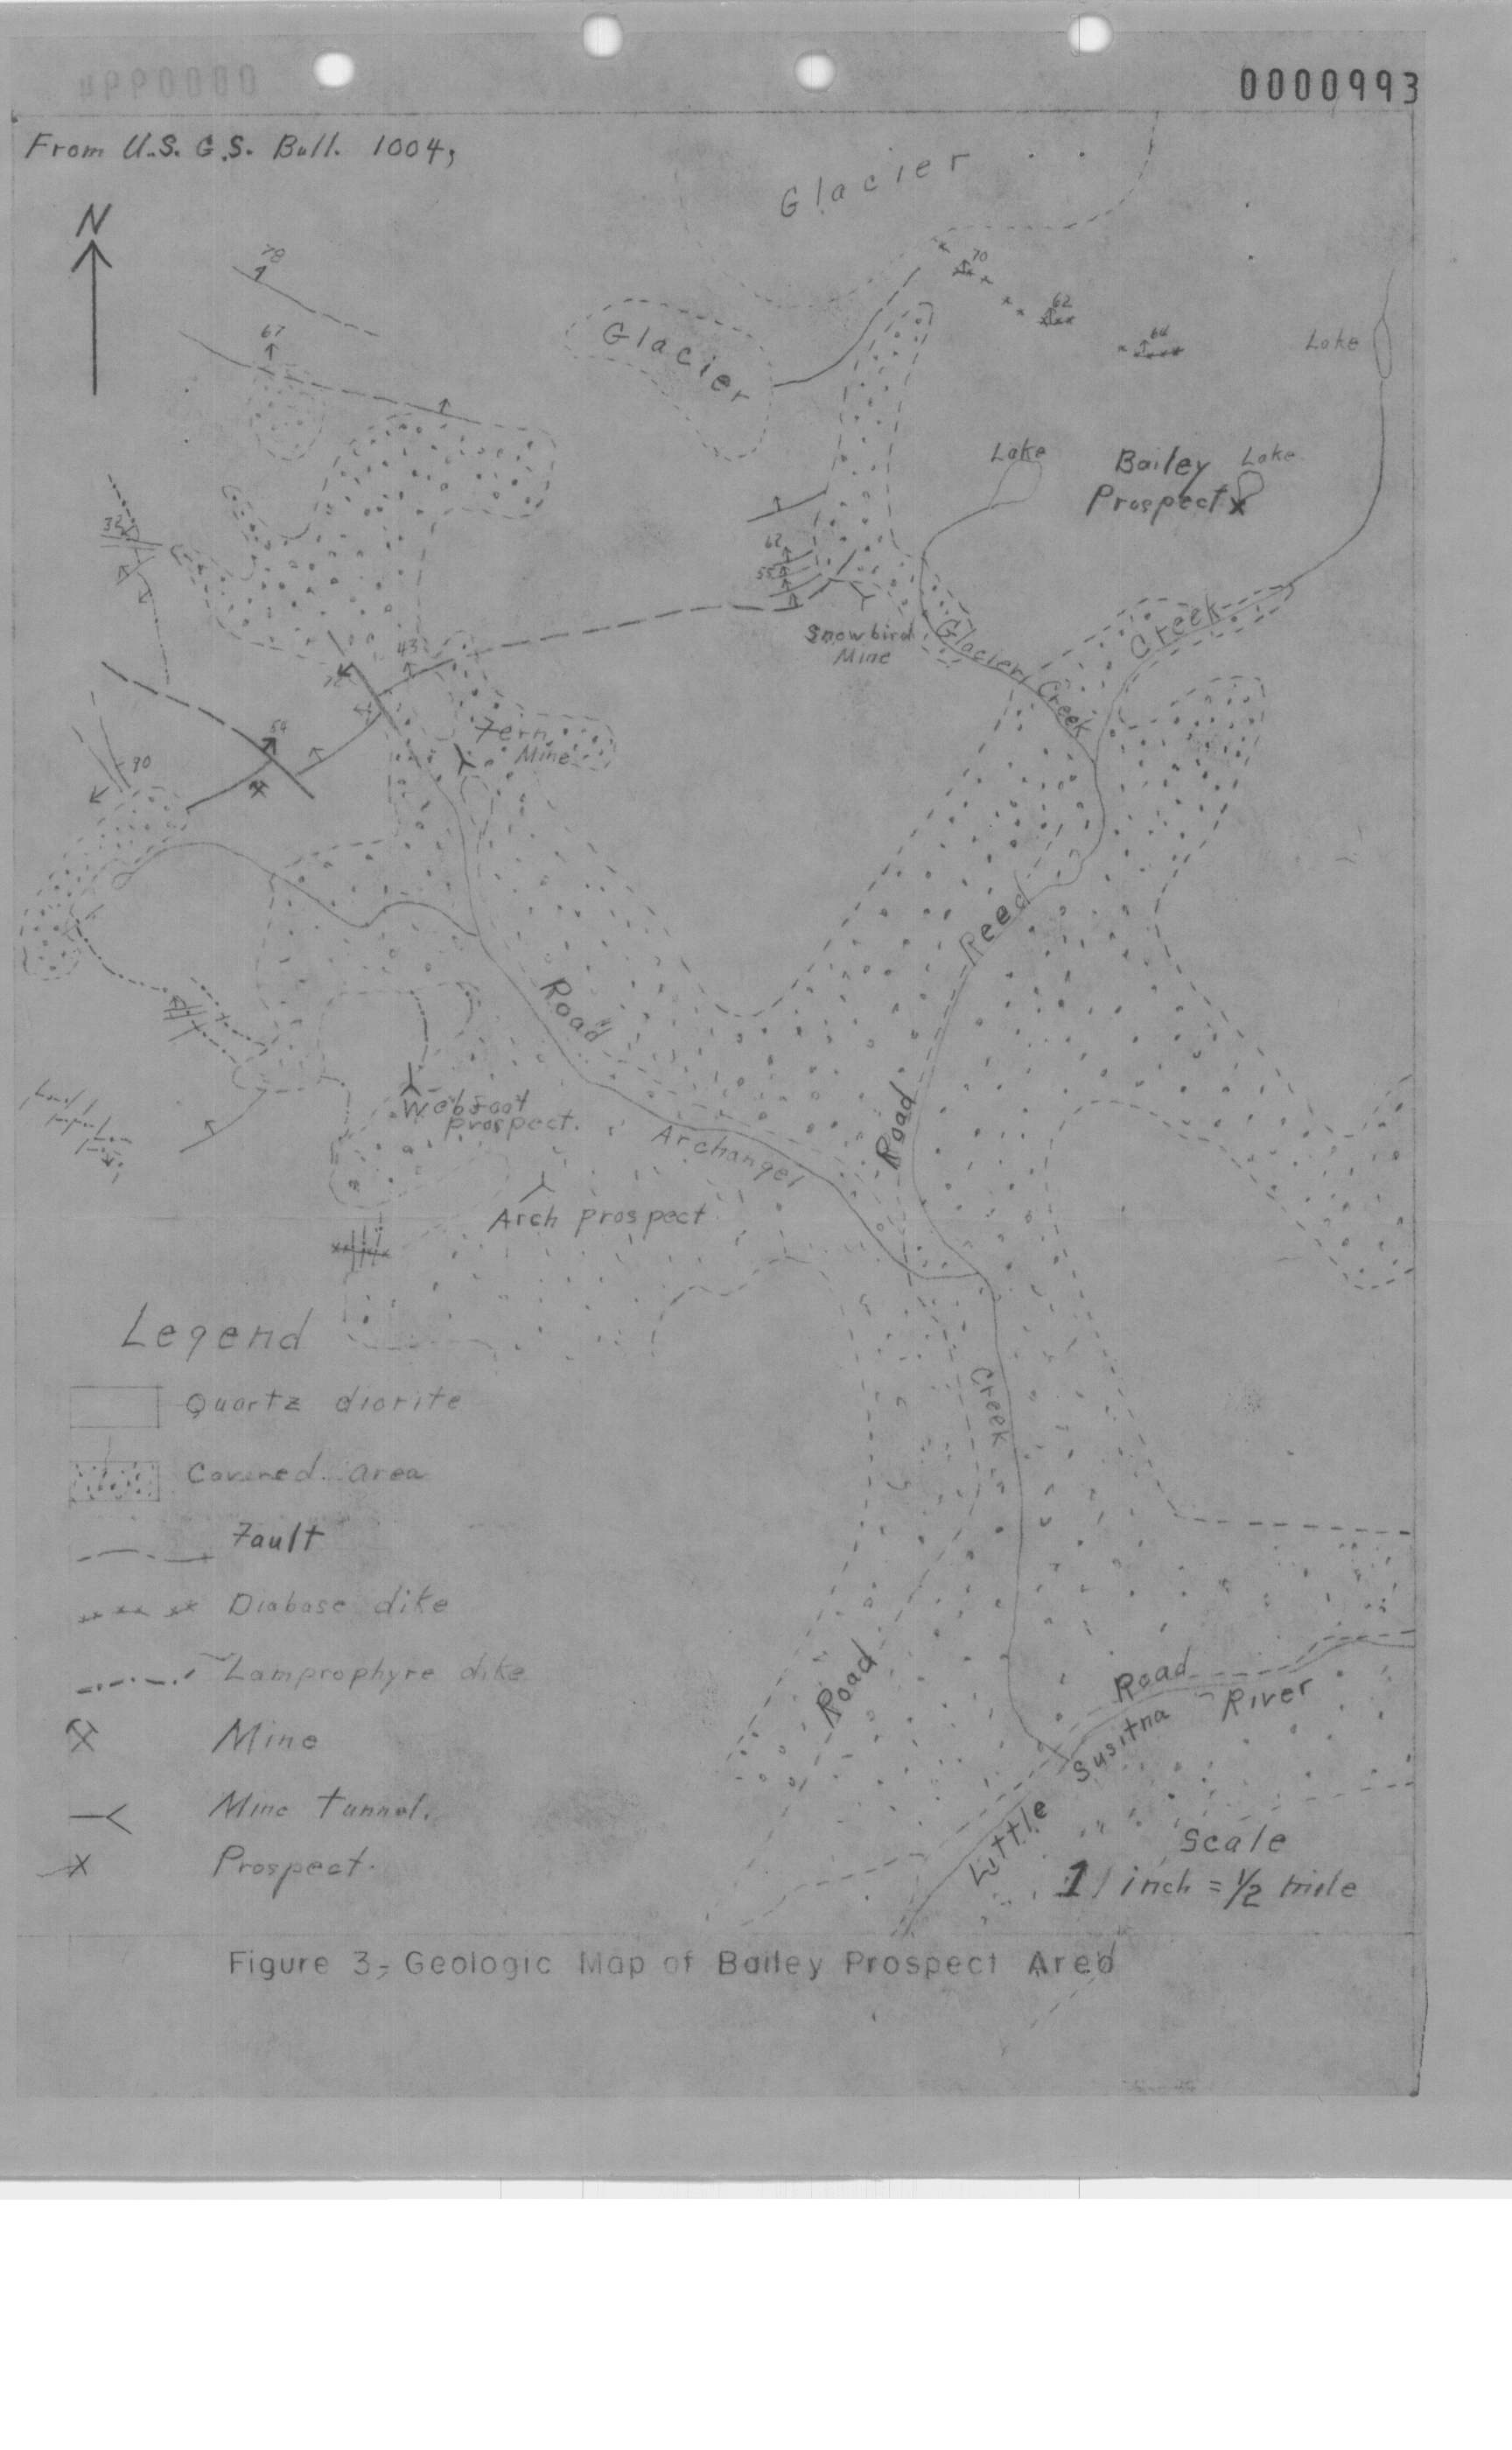 0000993
From U.S. G.S. Bull. 1004,
N
Glacier
78
70
62
67
64
Glacier
Lake
Lake
Bailey Lake
Prospect x
32
62
55
Snowbird
Mine
Glacier Creek
Creek
43
54
Fern
Mine
90
Reed
Road
Road
Webfoot
prospect.
Archangel
Arch prospect
Creek
Road
Road
Little Susitna River
Legend
Quartz diorite
Covered area
Fault
Diabase dike
Lamprophyre dike
Mine
Mine tunnel.
Prospect.
Scale
1 inch = 1/2 mile
Figure 3,- Geologic Map of Bailey Prospect Area